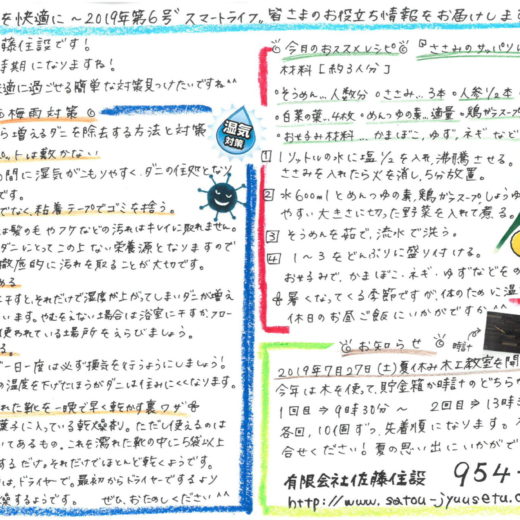 を快適に～2019年第6号 スマートライフ。皆さまのお役立ち情報をお届けします
藤住設です！
時期になりますね！
快適に過ごせる簡単な対策見つけたいですね^^
梅雨対策
ら増えるダニを除去する方法と対策
ペットは敷かない
の間に湿気がこもりやすく、ダニの住処となり
です。
でなく、粘着テープでゴミを拾う。
は髪の毛やフケなどの汚れはキレイに取れません。
ダニにとってこの上ない栄養源となりますので
徹底的に汚れを取ることが大切です。
める
干すと、それだけで湿度が上がってしまいダニが増え
います。やむをえない場合は浴室に干すか、フロー
使われている場所をえらびましょう。
る
で一日一度は必ず換気を行うようにしましょう！
の温度を下げたほうがダニは住みにくくなります。
れた靴を一晩で早く乾かす裏ワザ
菓子に入っている乾燥剤。ただし使えるのは
いてあるもの。これを濡れた靴の中に5袋以上
するだけ。それだけでほとんど乾くようです。
は、ドライヤーで。最初からドライヤーするより
燥するようです。 ぜひ、おためしください^^
湿気
対策
今月のおススメレシピ ささみのサッパリ
材料［約3人分］
そうめん…人数分 ささみ…3本 人参1/2本
白菜の葉…4枚 めんつゆの素…適量 鶏ガラスープ
おせるみ材料…かまぼこ、ゆず、ネギなど
1 1リットルの水に塩1/2を入れ、沸騰させる。
ささみを入れたら火を消し、5分放置。
2 水600mlとめんつゆの素、鶏ガラスープ、しょうゆ
やすい大きさに切った野菜を入れて煮る。
3 そうめんを茹で、流水で洗う。
4 1～3をどんぶりに盛り付ける。
おせるみで、かまぼこ・ネギ・ゆずなどをの
暑くなってくる季節ですが、体のために温
休日のお昼ご飯にいかがですか^^
お知らせ 時計
2019年7月27日(土)夏休み木工教室を開
今年は木を使って、貯金箱か時計のどちら
1回目⇒9時30分～ 2回目⇒13時3
各回、10個ずつ。先着順になります。
合せください！夏の思い出にいかがで
有限会社佐藤住設 954-
http://www.satou-jyuusetu.c